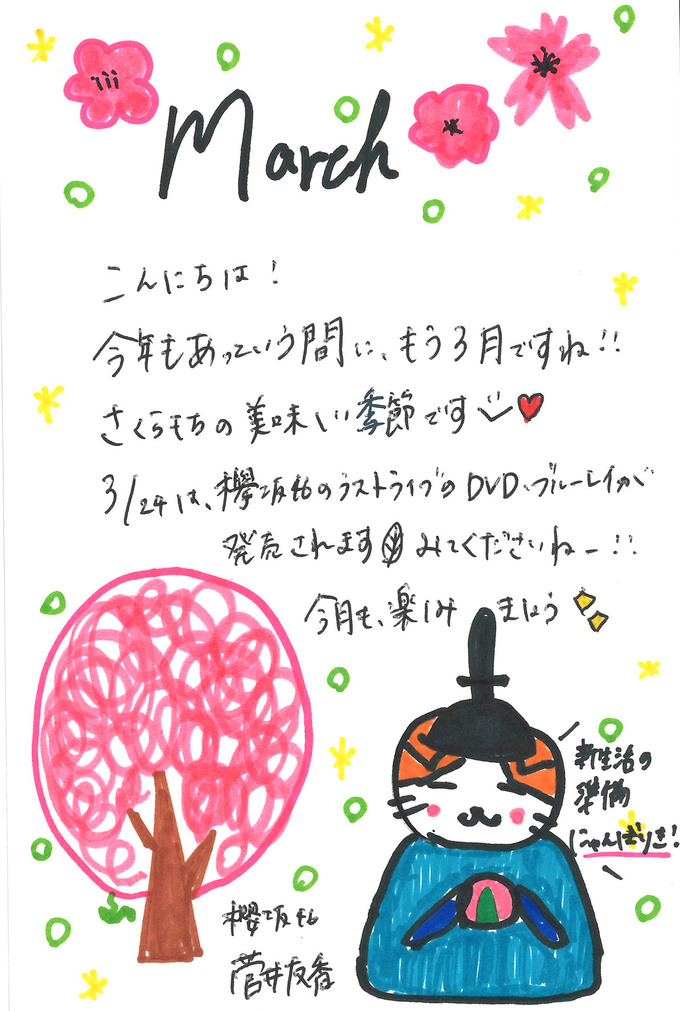 March
こんにちは!
今年もあっという間に、もう3月ですね!!
さくらもちの美味しい季節です
3/24は、欅坂46のラストライブのDVD、ブルーレイが
発売されます みてくださいねー!!
今月も、楽しみましょう
新生活の
準備
にゃんばりき!
櫻坂46
菅井友香